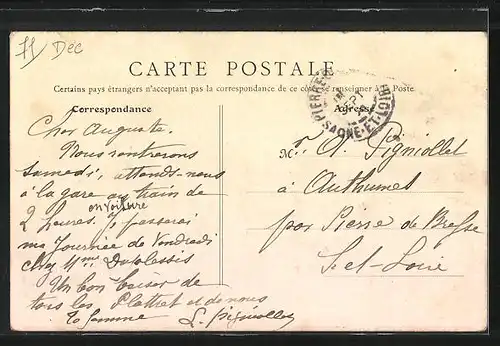 Déc
CARTE POSTALE
Certains pays étrangers n'acceptant pas la correspondance de ce côté, se renseigner à la Poste.
Correspondance
Adresse
PIERRE
SEPT
SAONE-ET-LOIRE
Cher Auguste.
Nous rentrerons
samedi, attends-nous
à la gare au train de
2 heures. en voiture
je passerai
ma journée de Vendredi
chez Mme Duplessis
Un bon baiser de
tous les et de nous
Ta femme L. Pigniollet
A. Pigniollet
à Authumes
par Pierre de Bresse
S. et-Loire